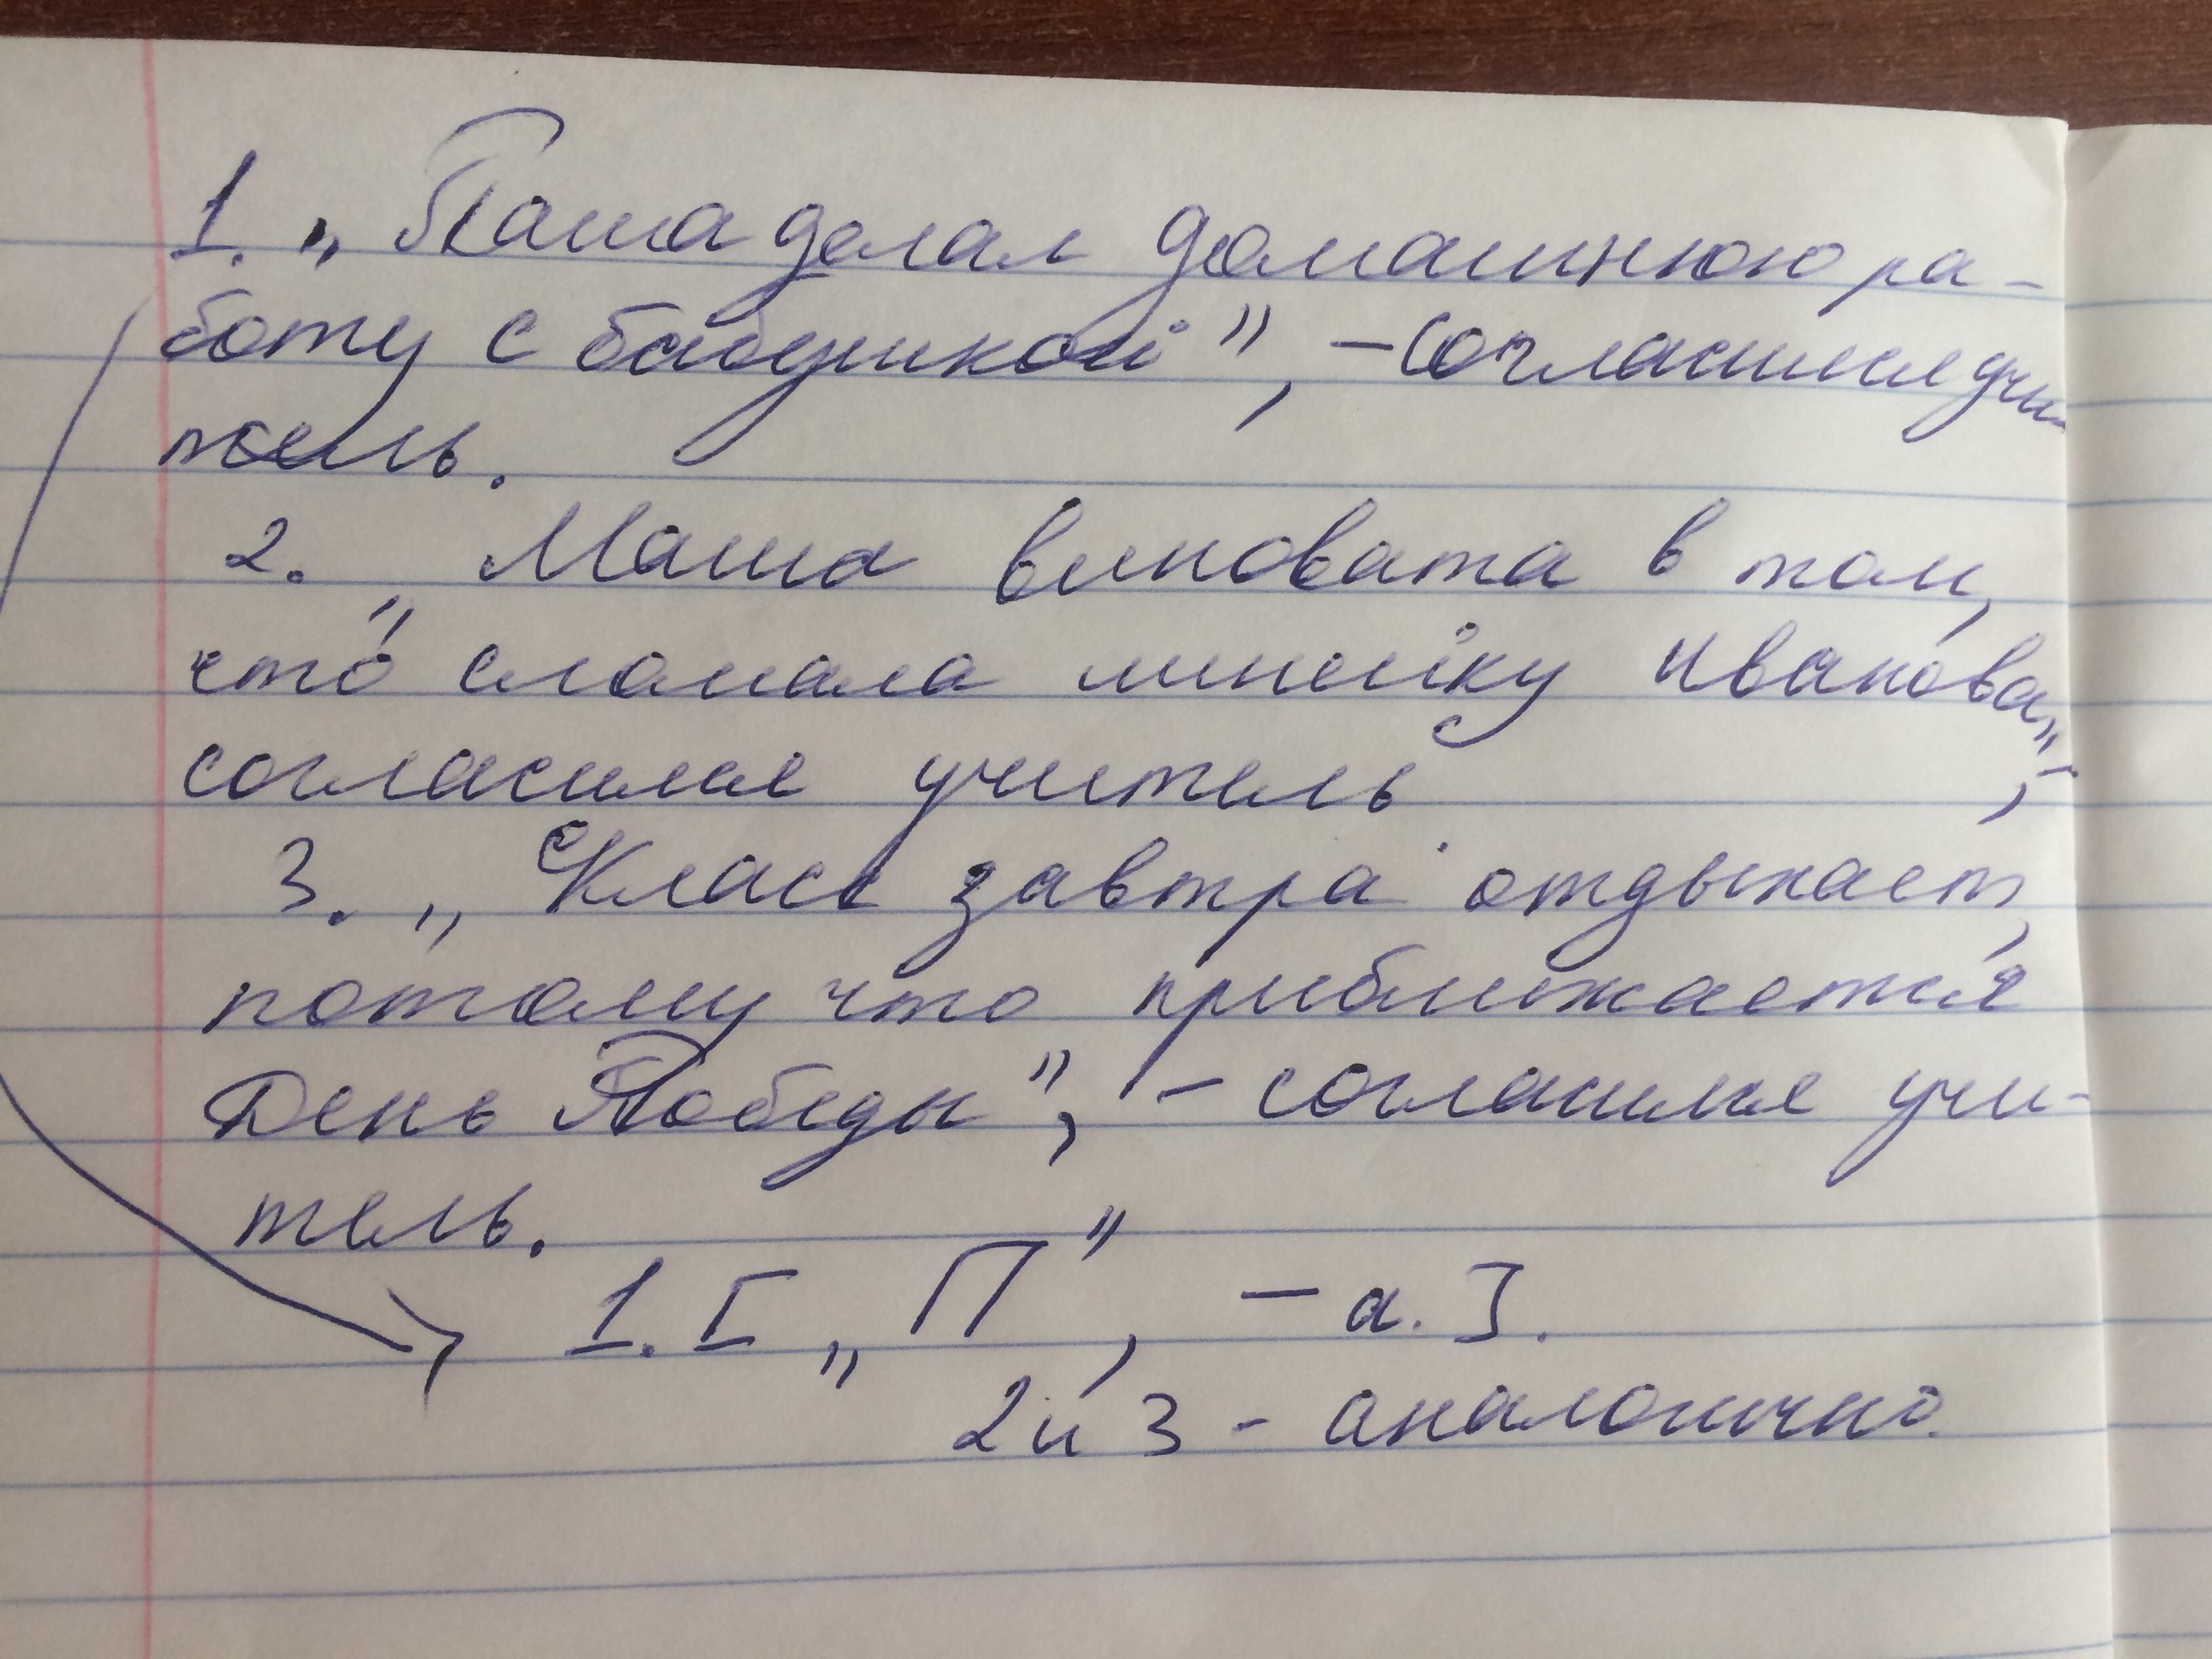 1. „Паша делал домашнюю ра-
боту с бабушкой”, – согласился учи-
тель.
2. „Маша виновата в том,
что сломала линейку Иванова”, –
согласился учитель.
3. „Класс завтра отдыхает,
потому что приближается
День Победы”, – согласился учи-
тель.
1. [„П”, – а.].
2 и 3 - аналогично.